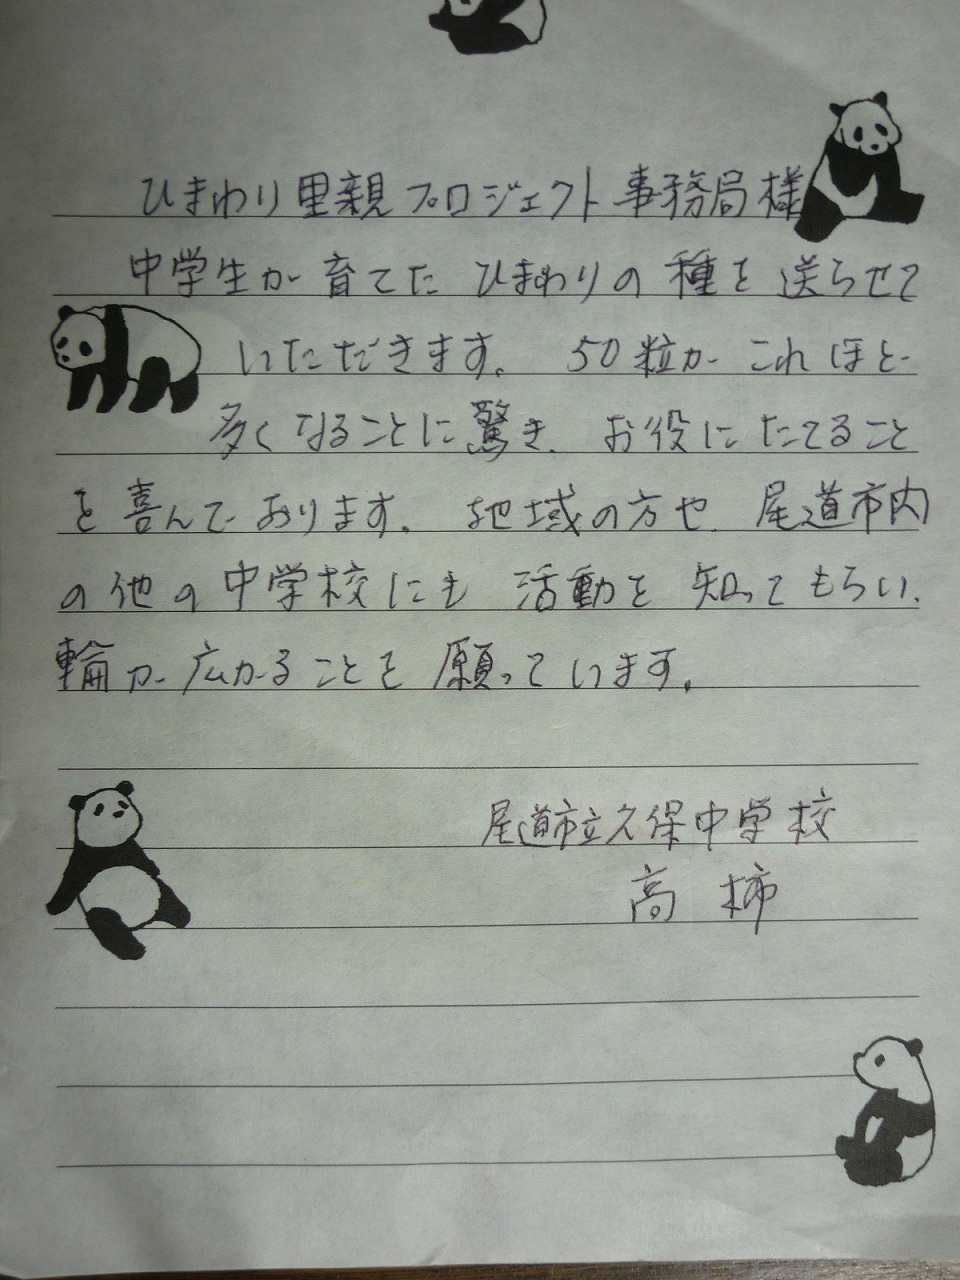 ひまわり里親プロジェクト事務局様
中学生が育てたひまわりの種を送らせて
いただきます。 50粒がこれほど
多くなることに驚き、お役にたてること
を喜んでおります。地域の方や、尾道市内
の他の中学校にも活動を知ってもらい、
輪が広がることを願っています。
尾道市立久保中学校
高柿